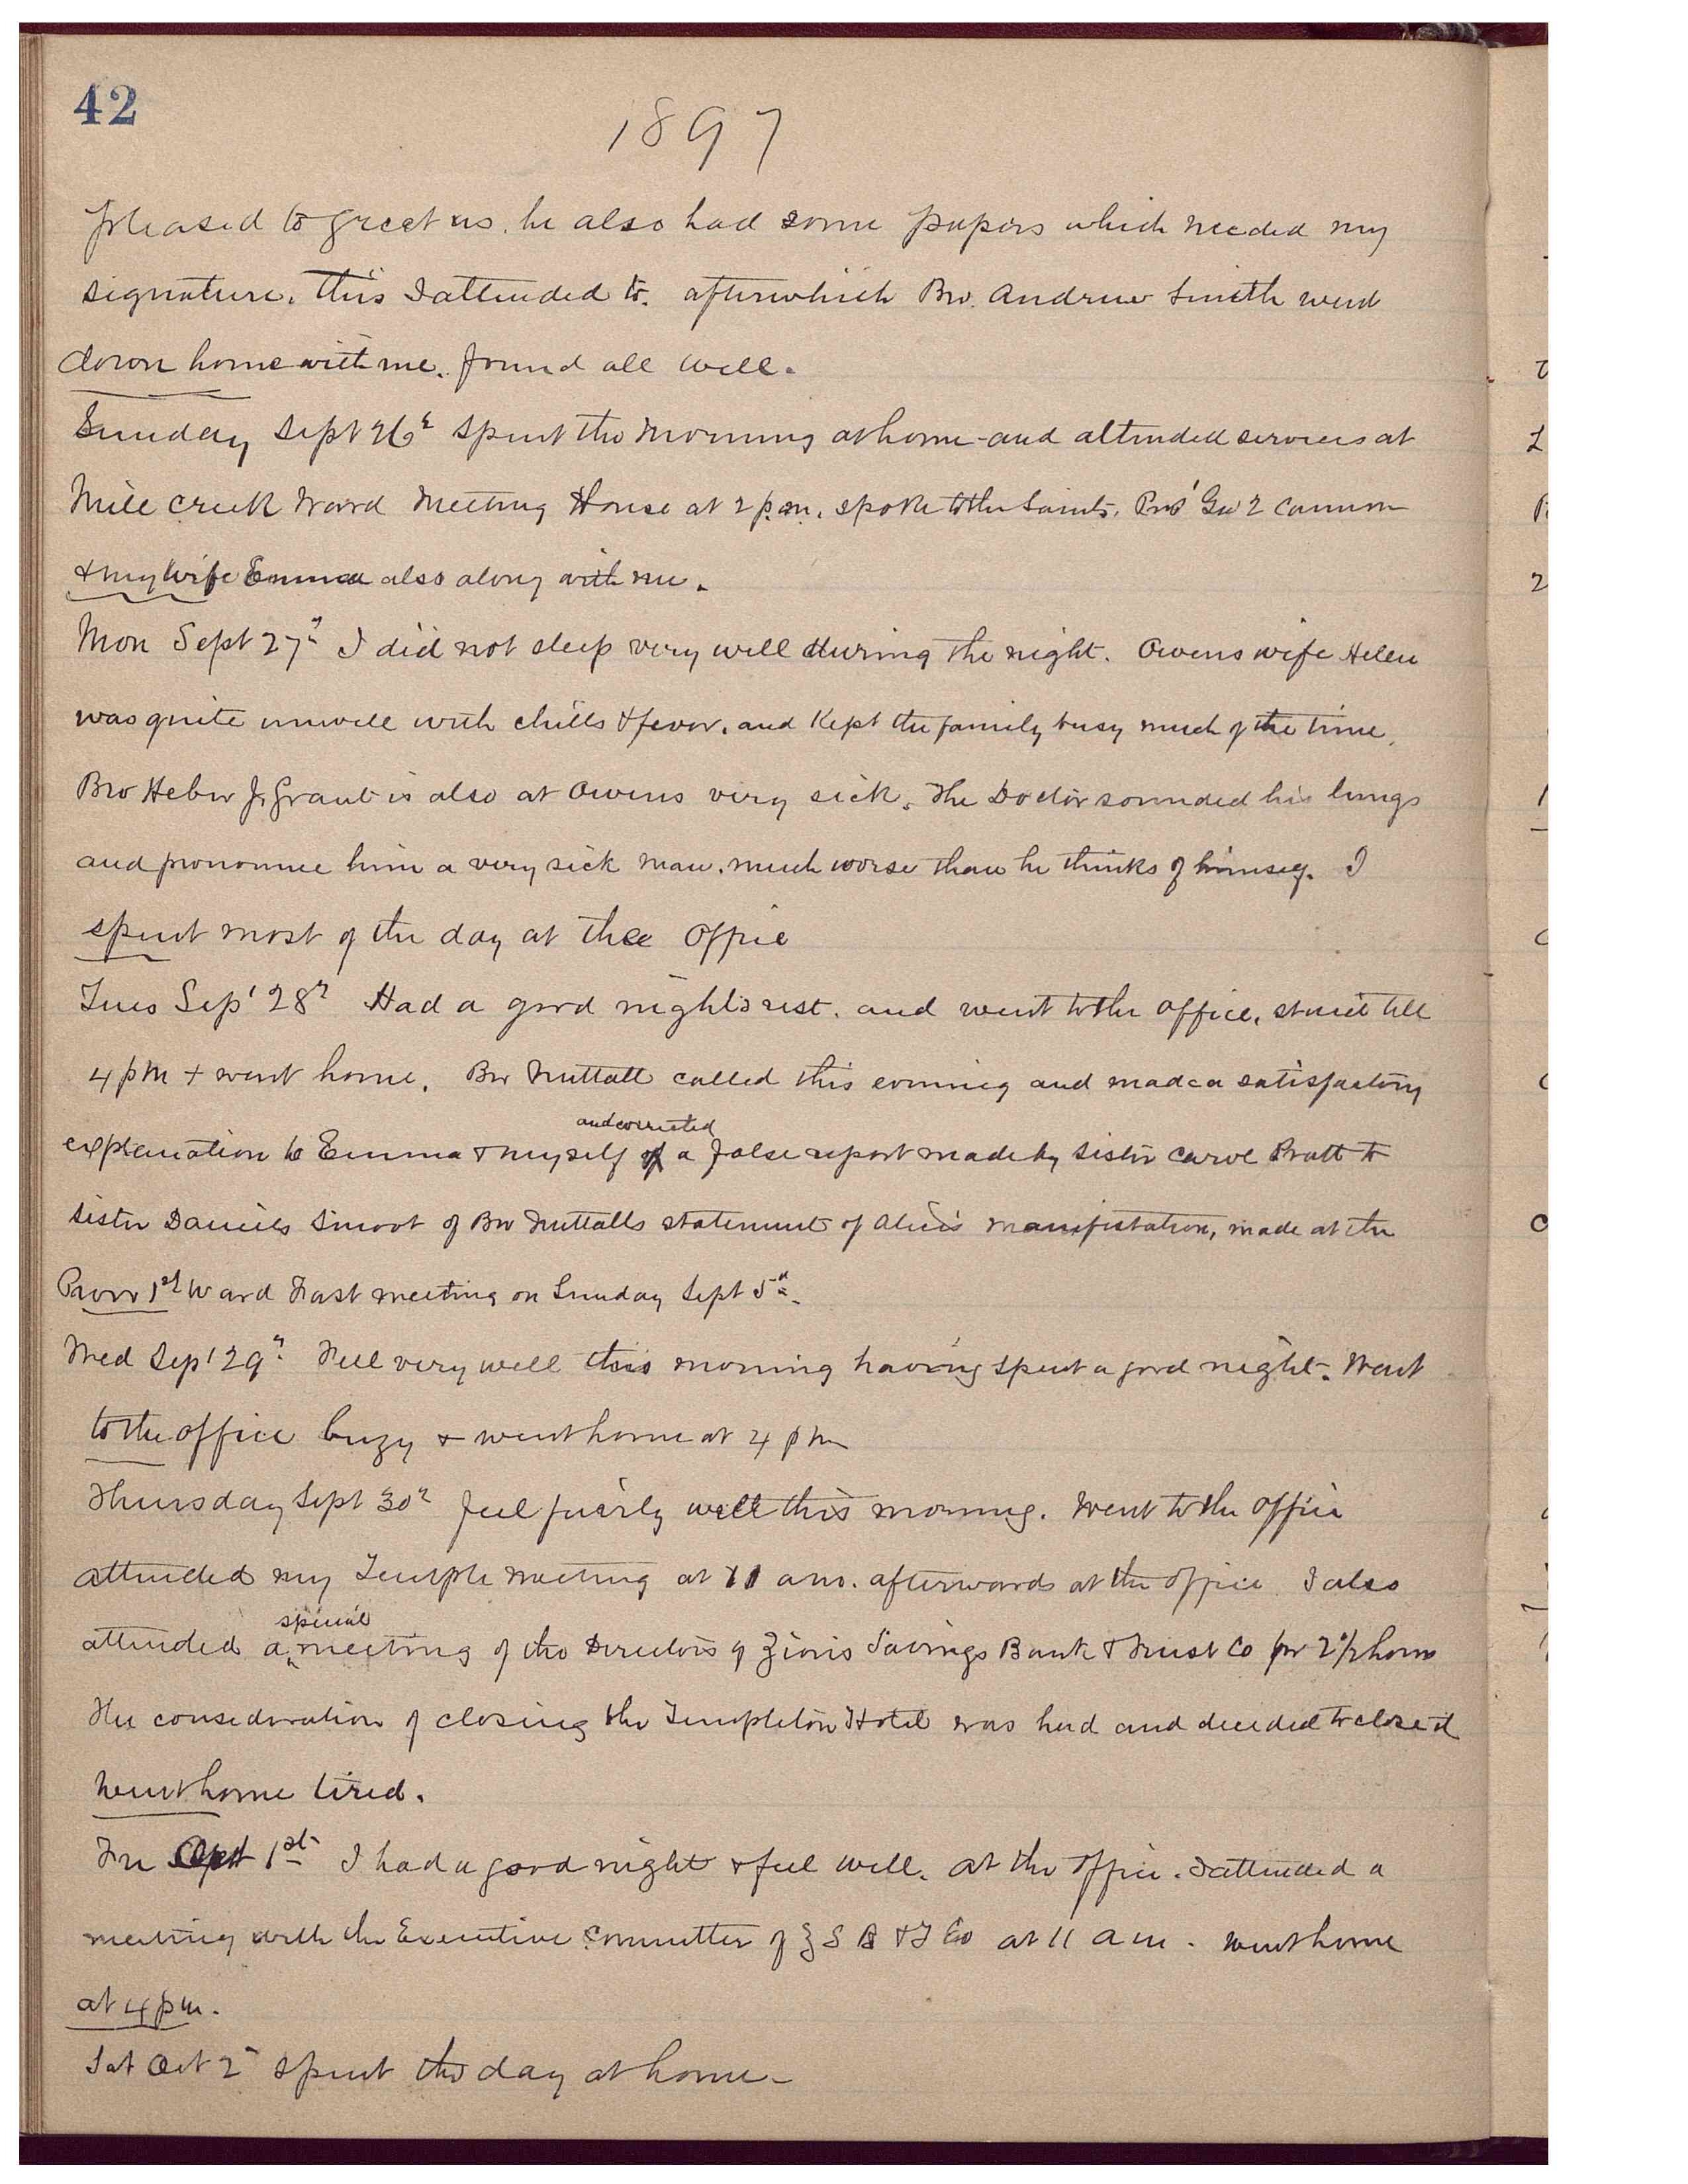 42
1897
pleased to greet us. he also had some papers which needed my
signature. this I attended to. afterwhich Bro. Andrew Smith went
down home with me. found all well.
Sunday Sept 26th spent the morning at home and attended services at
Mill Creek Ward Meeting House at 2 p.m. spoke to the Saints. Pres' Geo Q Cannon
& my wife Emma also along with me.
Mon Sept 27th I did not sleep very well during the night. Owens wife Helen
was quite unwell with chills & fever. and Kept the family busy much of the time.
Bro Heber J. Grant is also at Owens very sick. The Doctor sounded his lungs
and pronounce him a very sick man. much worse than he thinks of himself. I
spent most of the day at the office
Tues Sep' 28th Had a good night's rest. and went to the office, staid till
4 pm & went home. Bro Nuttall called this evening and made a satisfactory
and corrected
explanation to Emma & myself of a false report made by Sister Carol Pratt to
Sister Daniels Smoot of Bro Nuttalls statement of Alice's manifestation, made at the
Provo 1st Ward Fast meeting on Sunday Sept 5th.
Wed Sep' 29th Feel very well this morning having spent a good night. Went
to the office buzy & went home at 4 pm
Thursday Sept 30th feel fairly well this morning. Went to the office
attended my Temple meeting at 11 a.m. afterwards at the office I also
special
attended a meeting of the Directors of Zions Savings Bank & Trust Co for 2 1/2 hours
The consideration of closing the Templeton Hotel was had and decided to close it
went home tired.
Fri Oct 1st I had a good night & feel well. at the office. I attended a
meeting with the Executive Committee of Z S B & T Co at 11 a m. went home
at 4 pm.
Sat Oct 2nd spent the day at home.